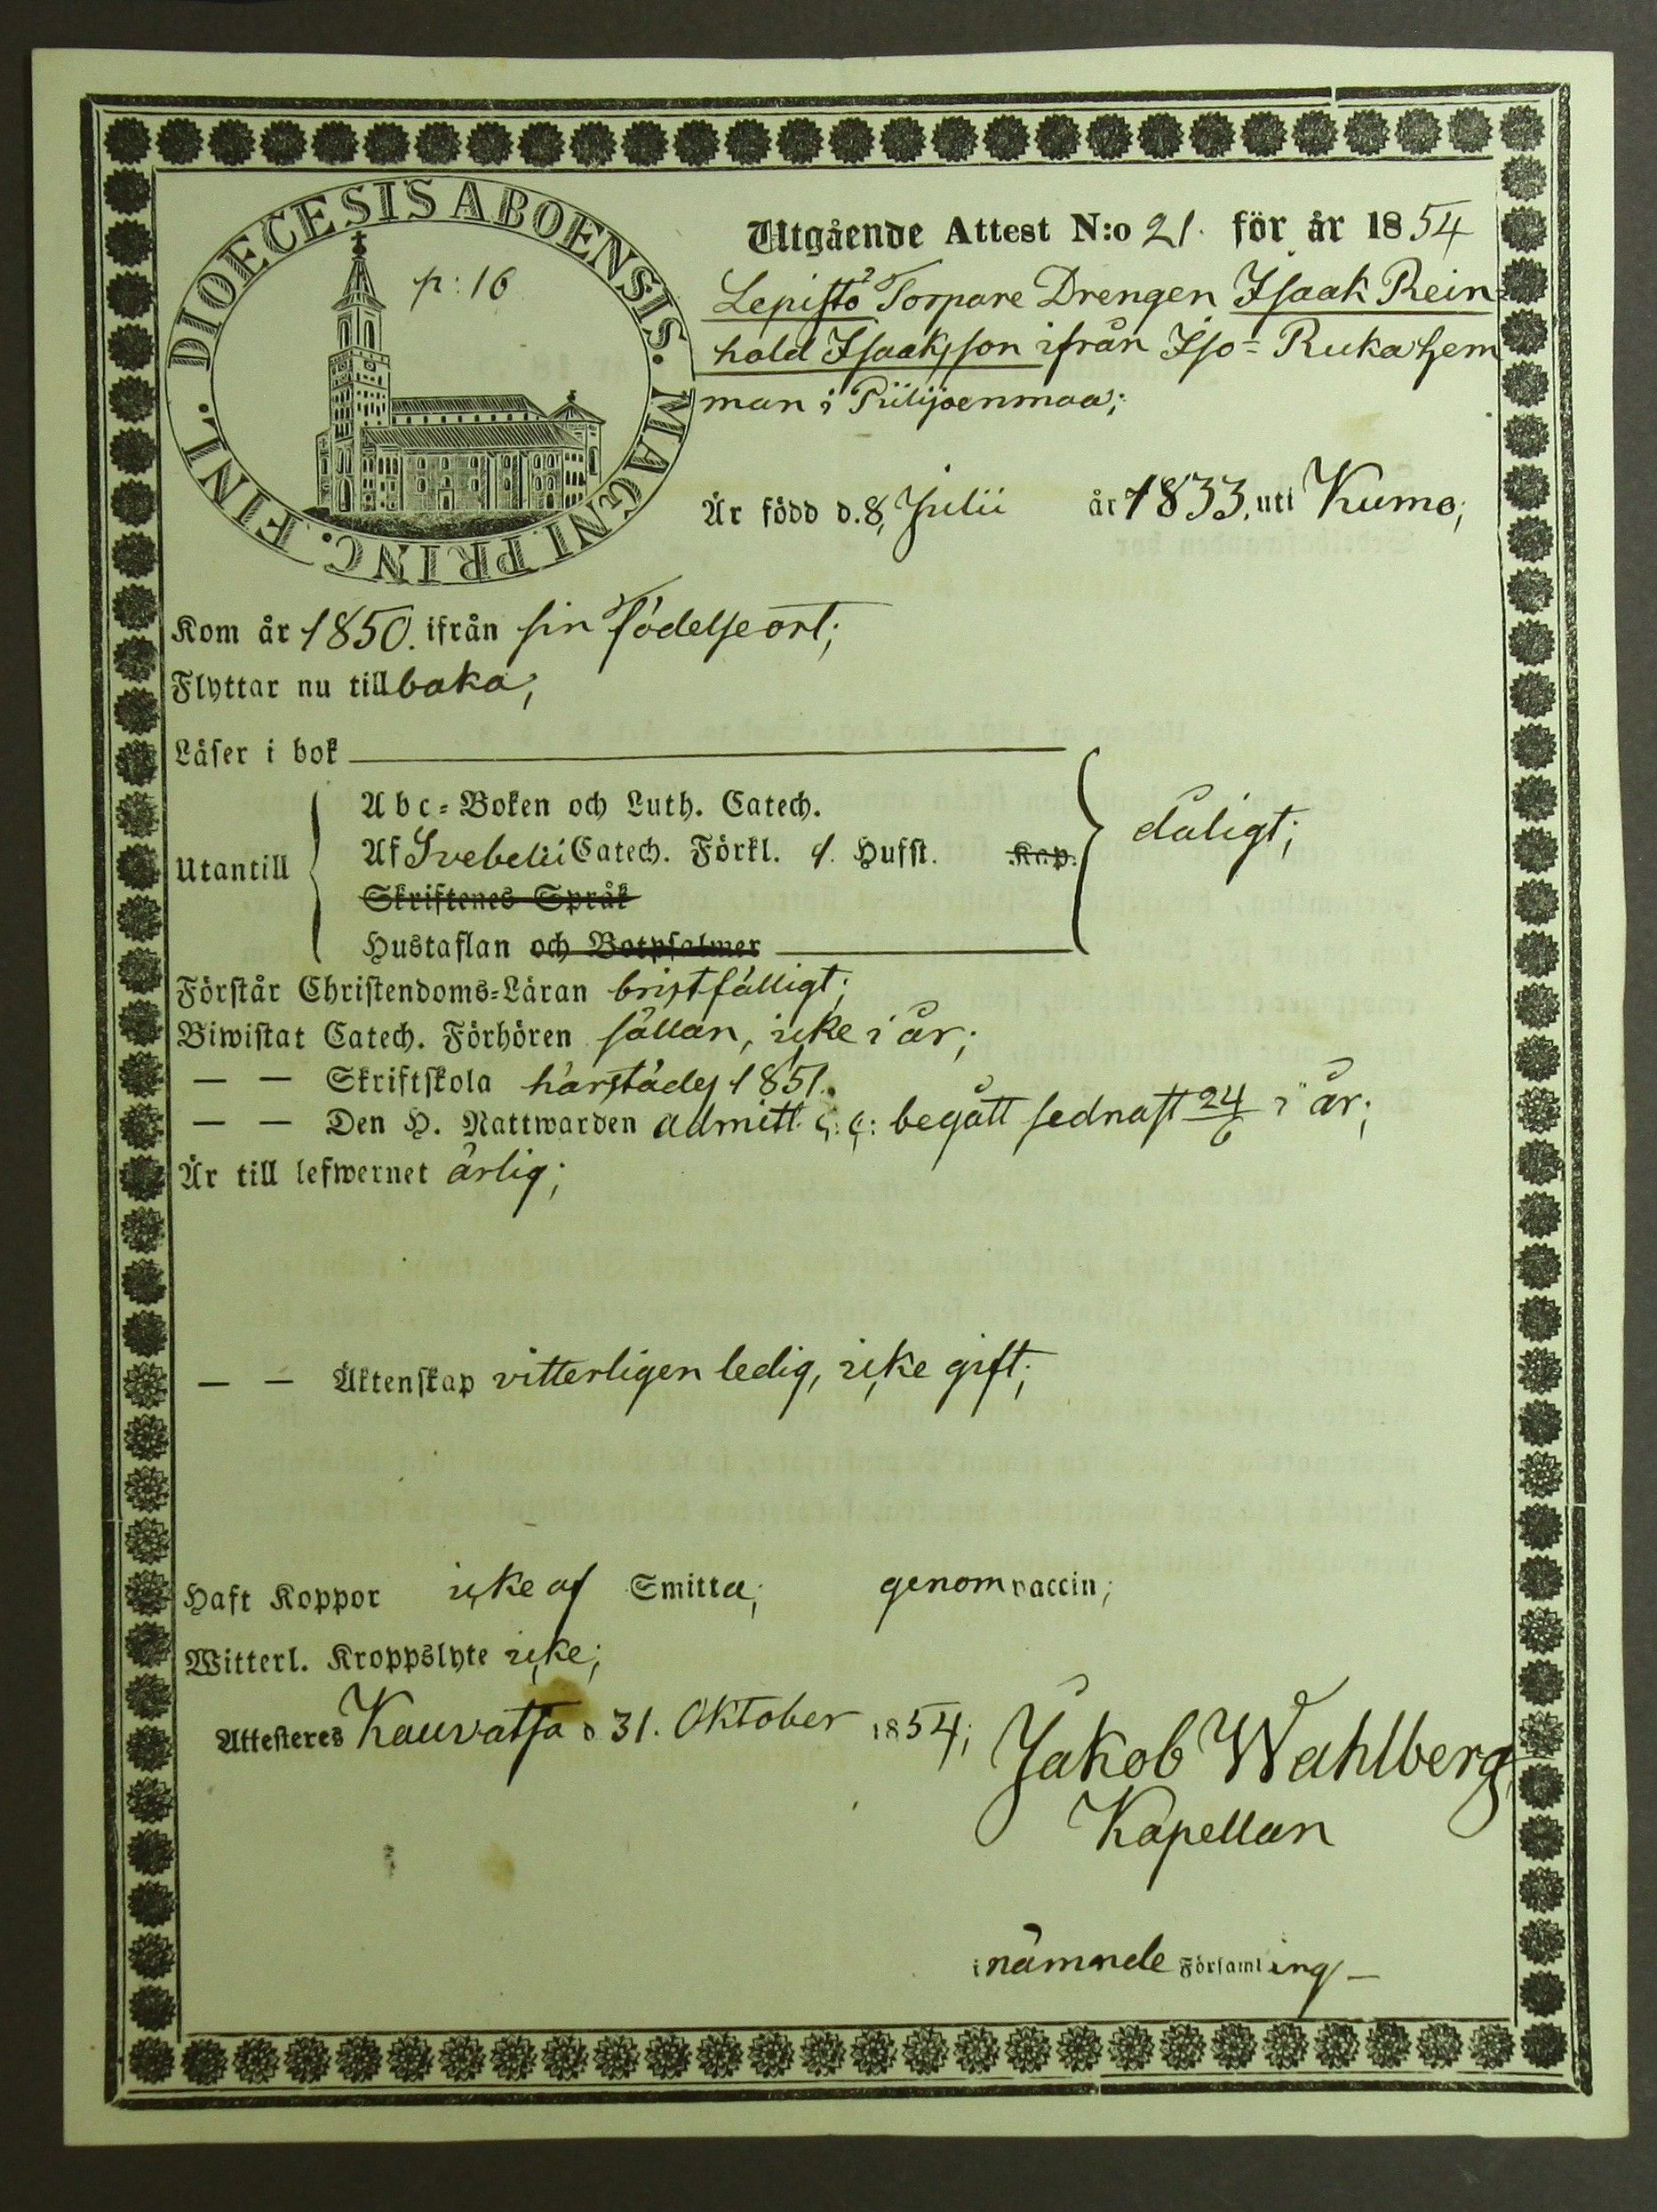 DIOECESIS ABOENSIS. MAGNI PRINC. FINL.
p: 16
Utgående Attest N:o 21. för år 1854
Lepistö Torpare Drengen Isaak Rein-
hold Isaaksson ifrån Iso-Ruka hem
man i Piilijoenmaa;
Är född d. 8, Julii år 1833, uti Kumo;
Kom år 1850. ifrån sin Födelseort;
Flyttar nu tillbaka;
Läser i bok
Utantill
Abc-Boken och Luth. Catech.
Af Svebelii Catech. Förkl. 1. Hufst. Kap.
Skriftenes Språk
Hustaflan och Botpsalmer
dåligt;
Förstår Christendoms-Läran bristfälligt;
Biwistat Catech. Förhören sällan, icke i år;
— — Skriftskola härstädes 1851.
— — Den H. Nattwarden admitt. c. c: begått sednast 24/6 i år;
Är till lefwernet ärlig;
— — Äktenskap vitterligen ledig, icke gift;
Haft Koppor icke af Smitta; genom vaccin;
Witterl. Kroppslyte icke;
Attesteres Kauvatsa d 31. Oktober 1854;
Jakob Wahlberg
Kapellan
i nämnde Församling